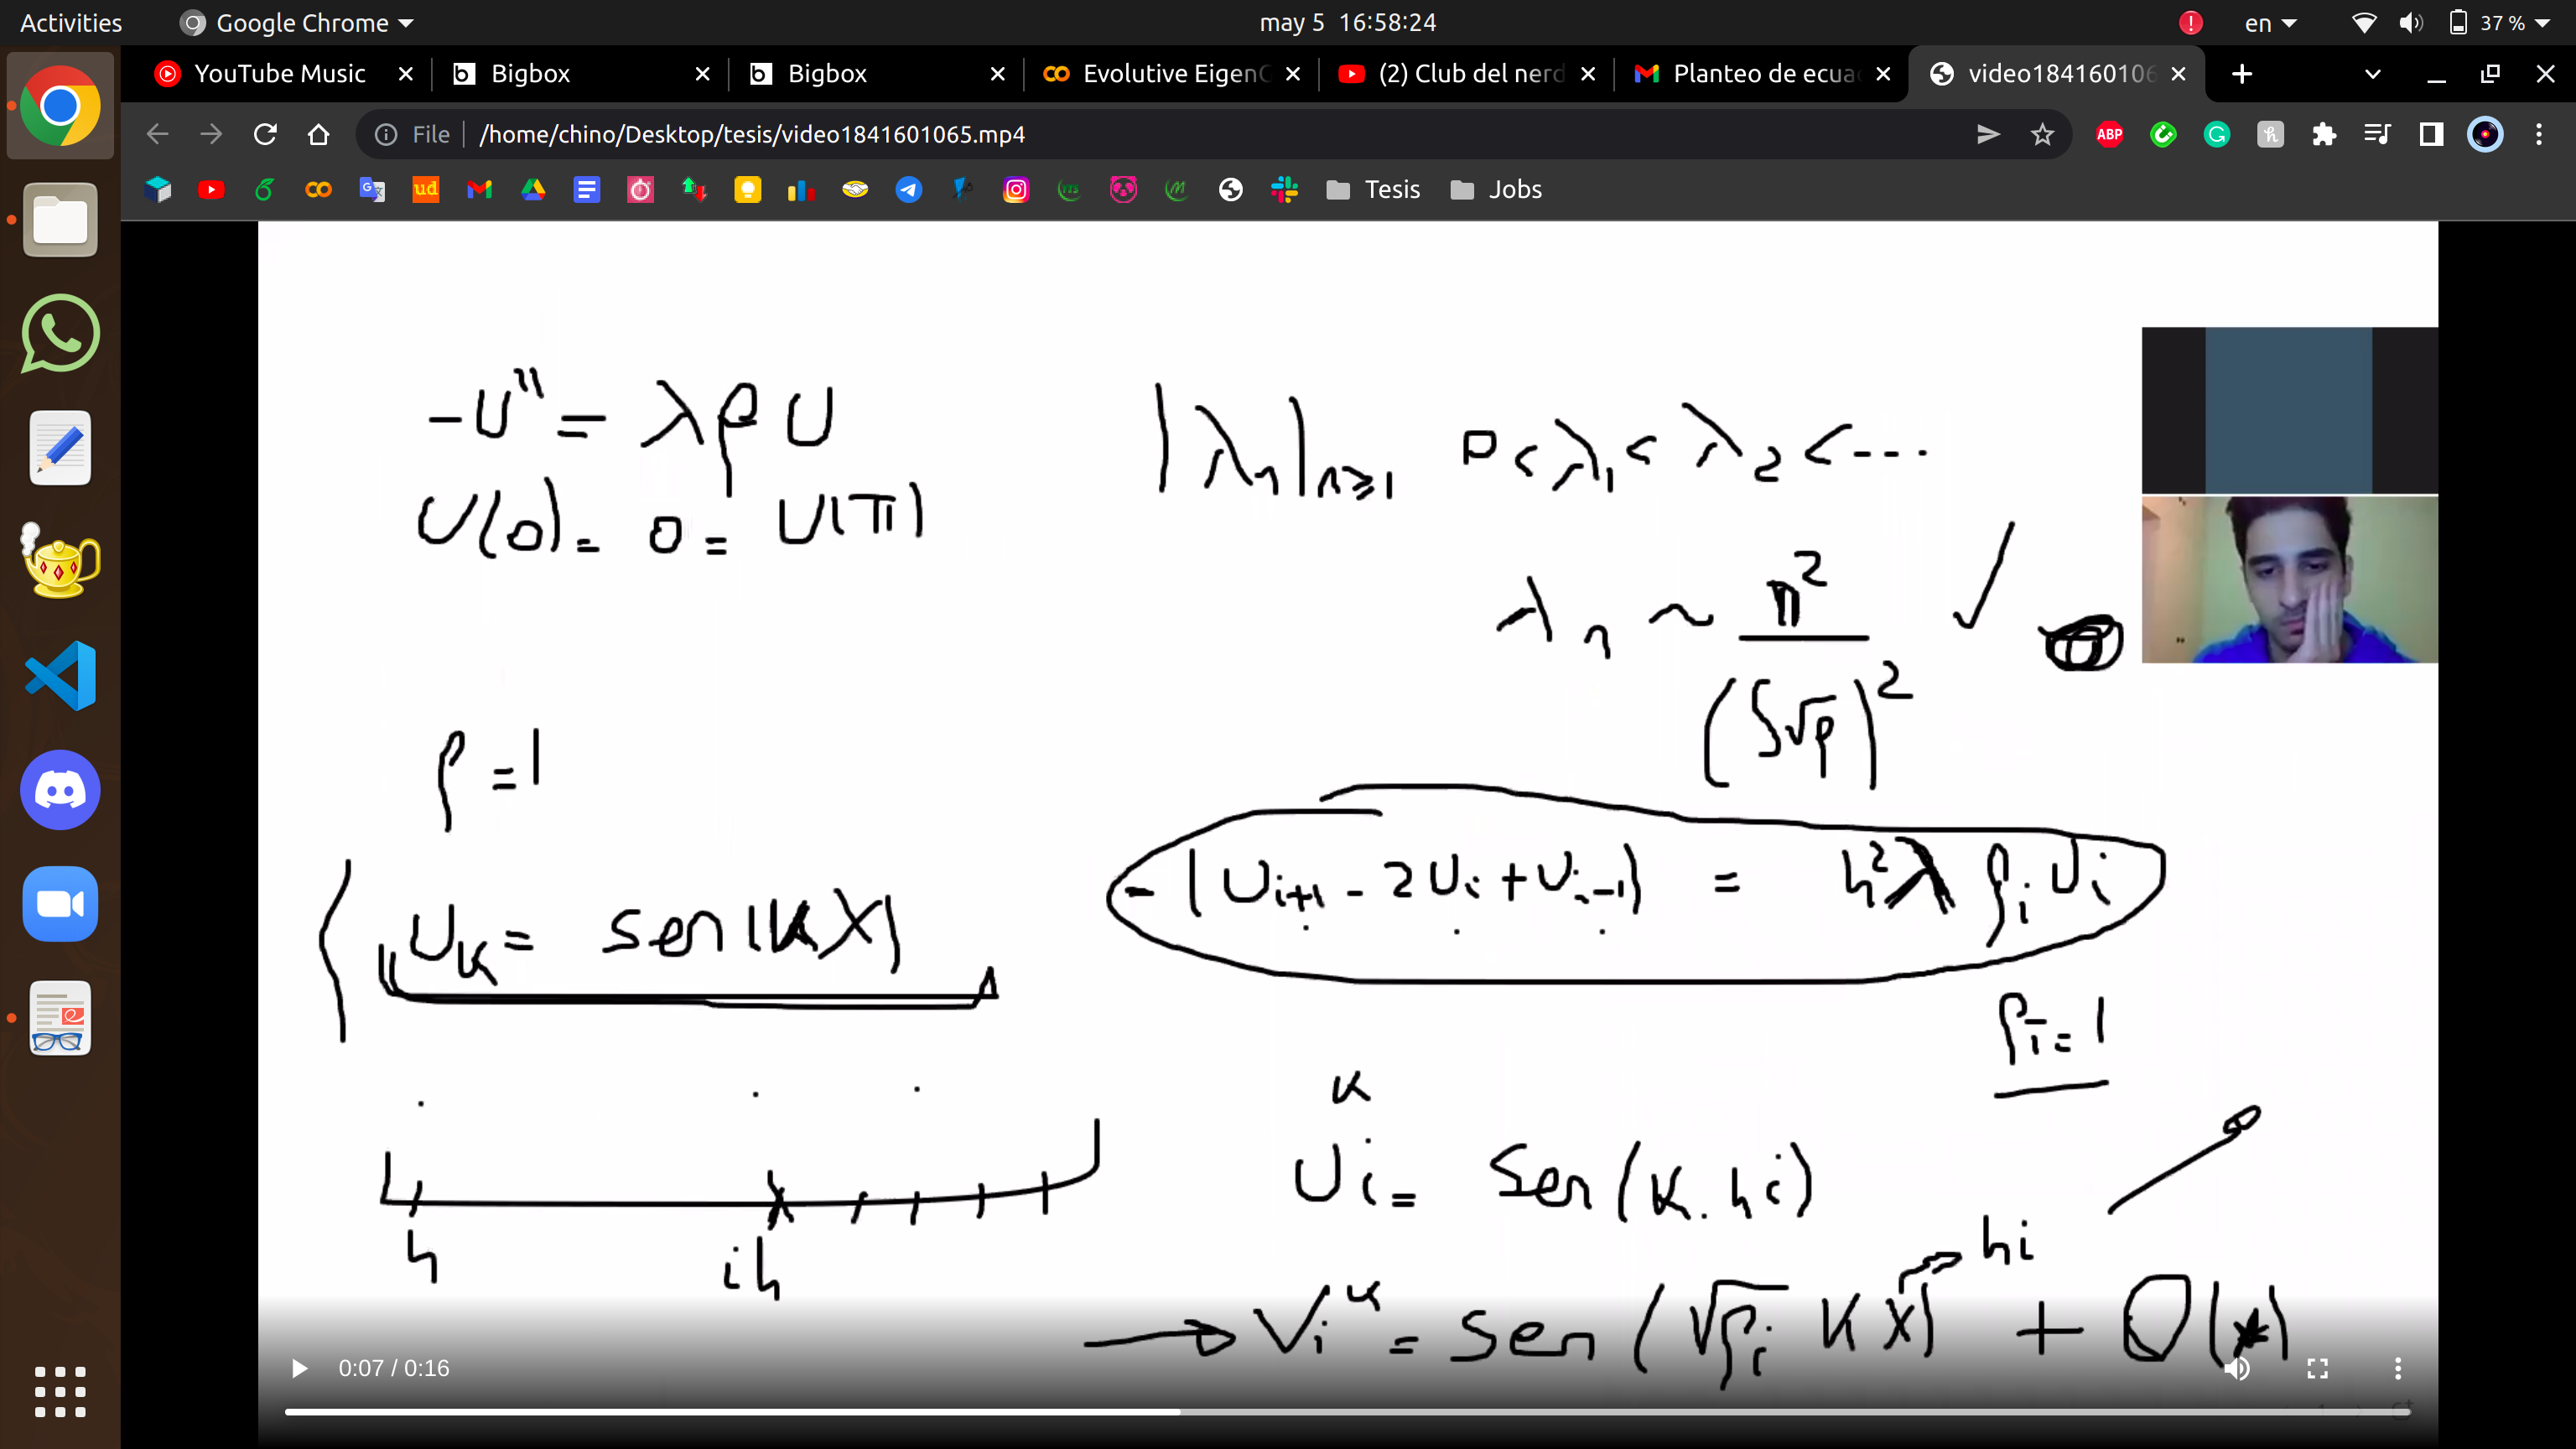 Activities Google Chrome may 5 16:58:24 en 37 %
YouTube Music Bigbox Bigbox Evolutive EigenC (2) Club del nerd Planteo de ecua video184160106
File /home/chino/Desktop/tesis/video1841601065.mp4 ABP
ud Tesis Jobs
-U'' = λρU
U(0) = 0 = U(π)
|λn|n≥1 0 < λ1 < λ2 < ...
λn ~ π²
(∫√ρ)²
ρ = 1
-(Ui+1 - 2Ui + Ui-1) = h²λ ρi Ui
UK = sen(KX)
ρi = 1
K
Ui = Sen(K.hi)
h ih
hi
Vi^K = Sen(√ρi KX) + O(*)
0:07 / 0:16